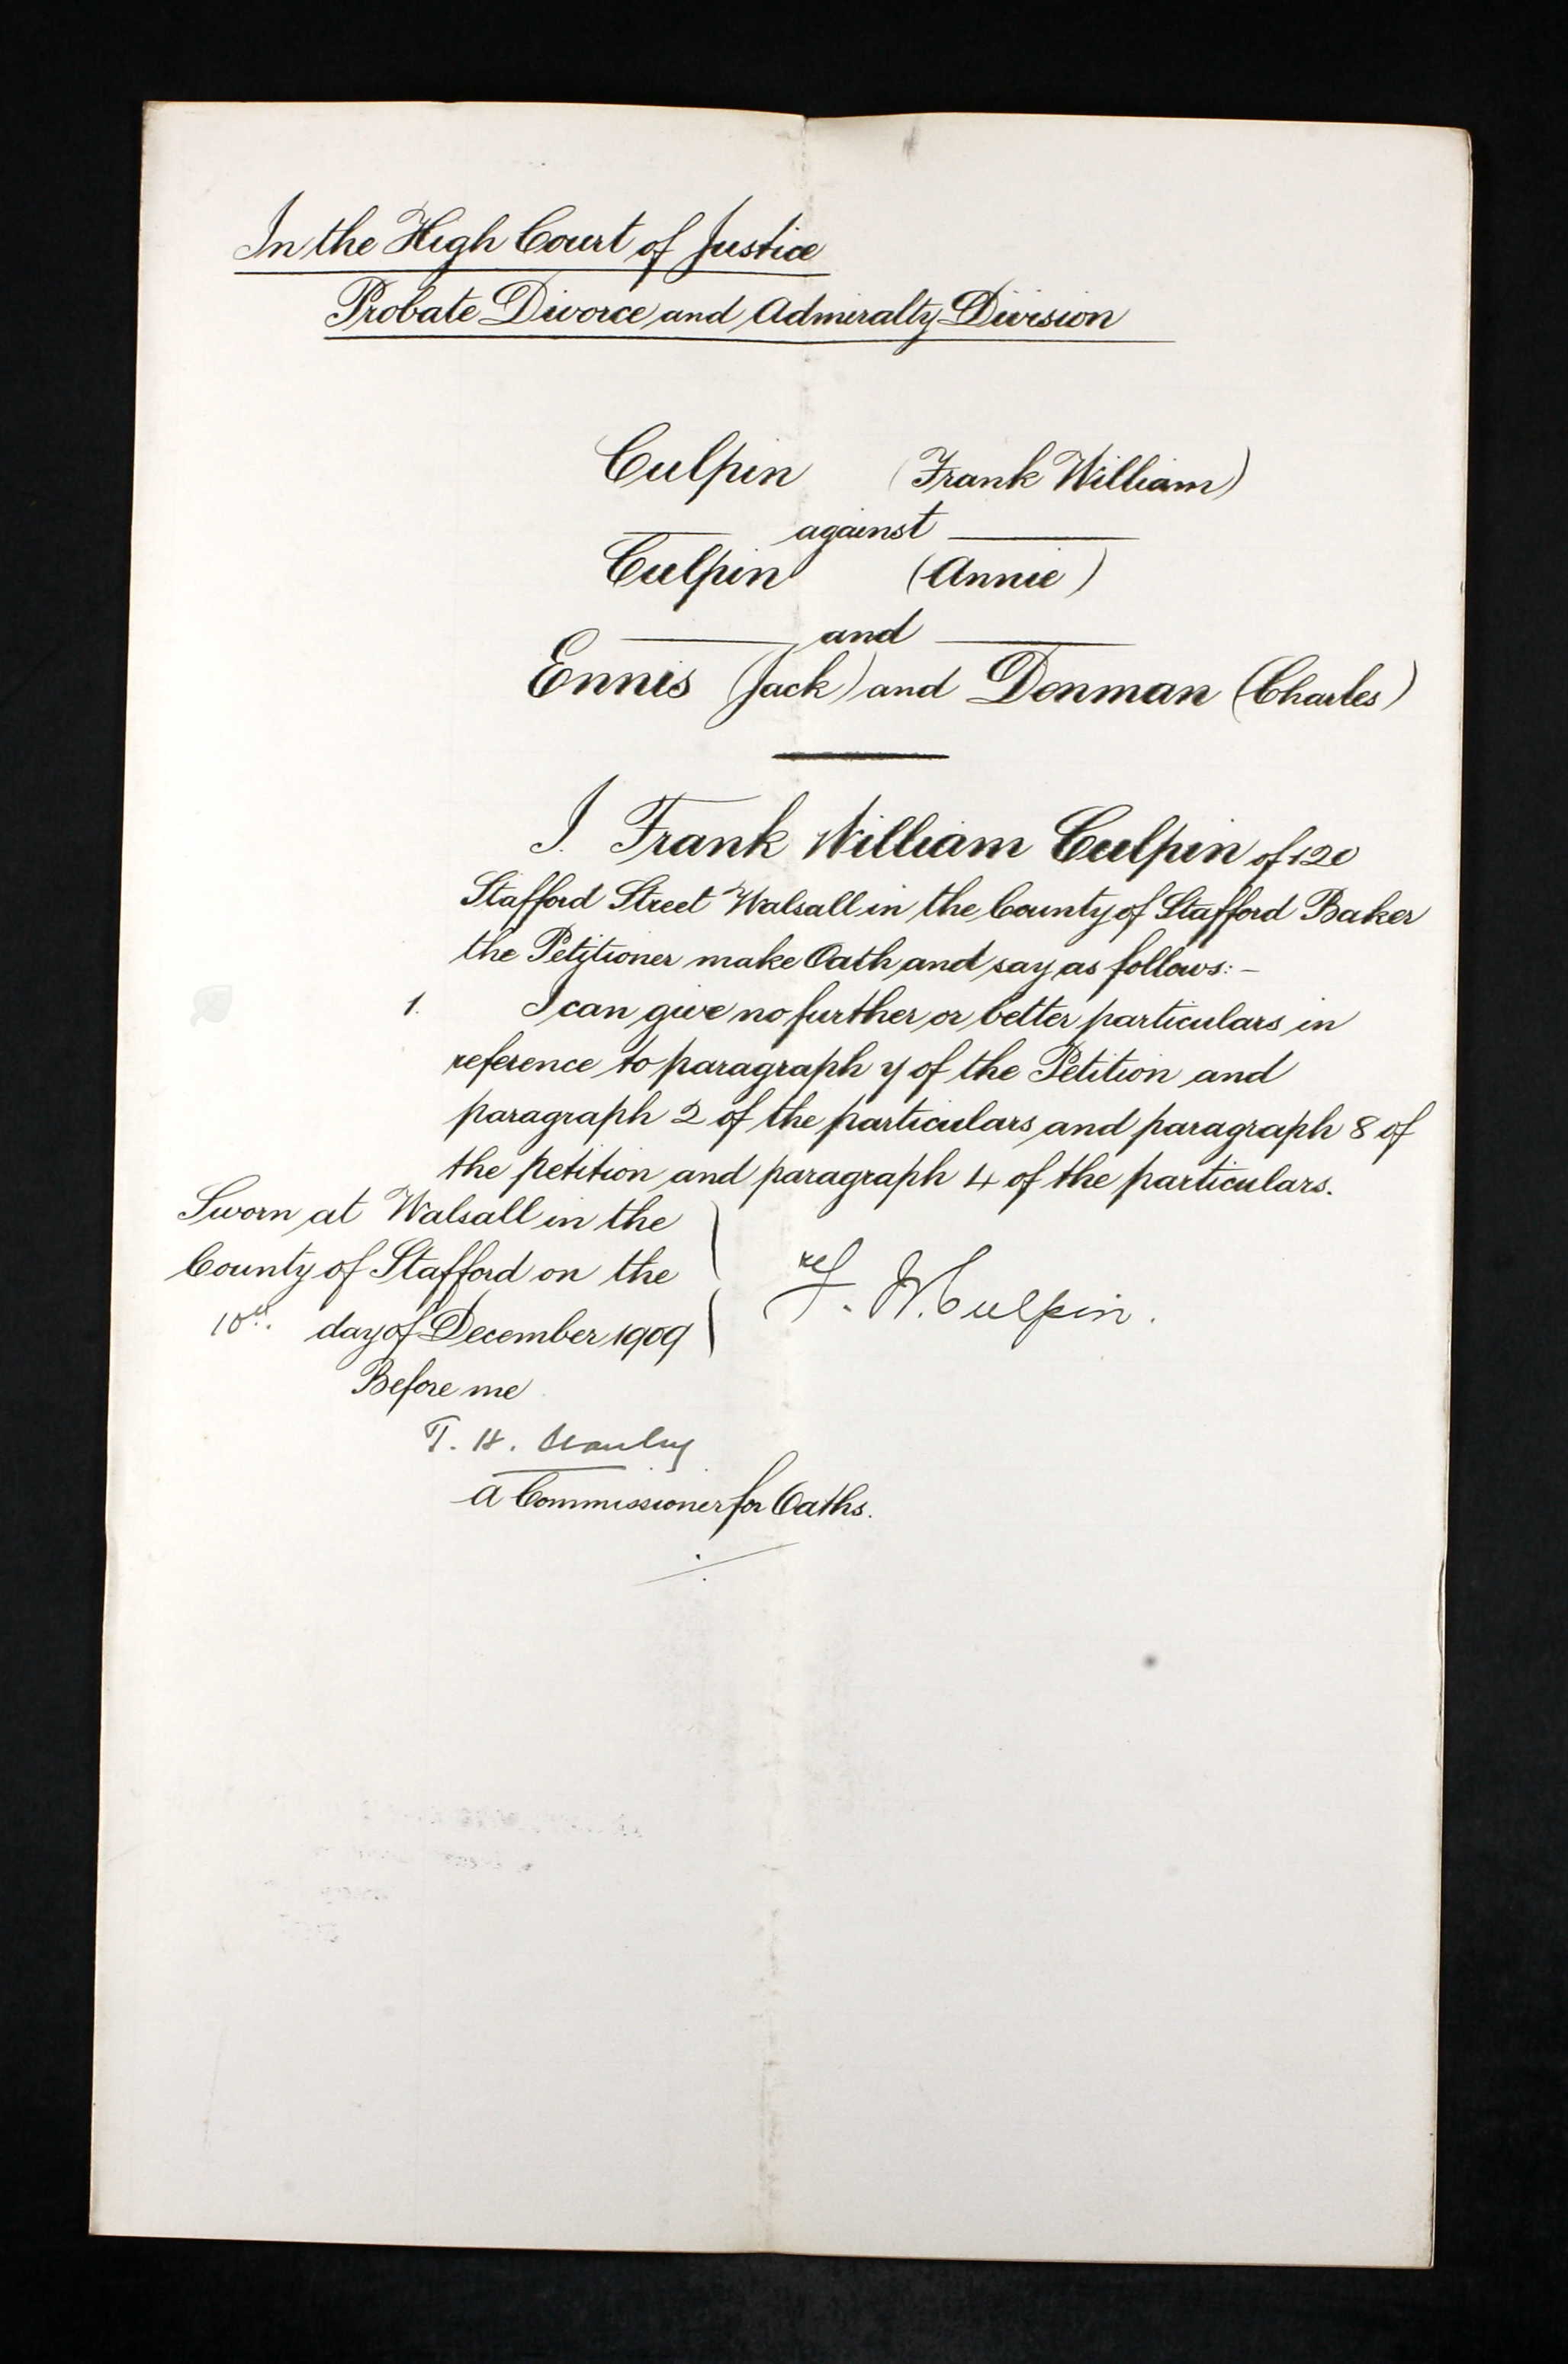 In the High Court of Justice
Probate Divorce and Admiralty Division
Culpin (Frank William)
against
Culpin (Annie)
and
Ennis (Jack) and Denman (Charles)
I Frank William Culpin of 120
Stafford Street Walsall in the County of Stafford Baker
the Petitioner make Oath and say as follows:-
1. I can give no further or better particulars in
reference to paragraph 7 of the Petition and
paragraph 2 of the particulars and paragraph 8 of
the petition and paragraph 4 of the particulars.
Sworn at Walsall in the
County of Stafford on the
10th. day of December 1909
F. W. Culpin.
Before me
T. H.
A Commissioner for Oaths.